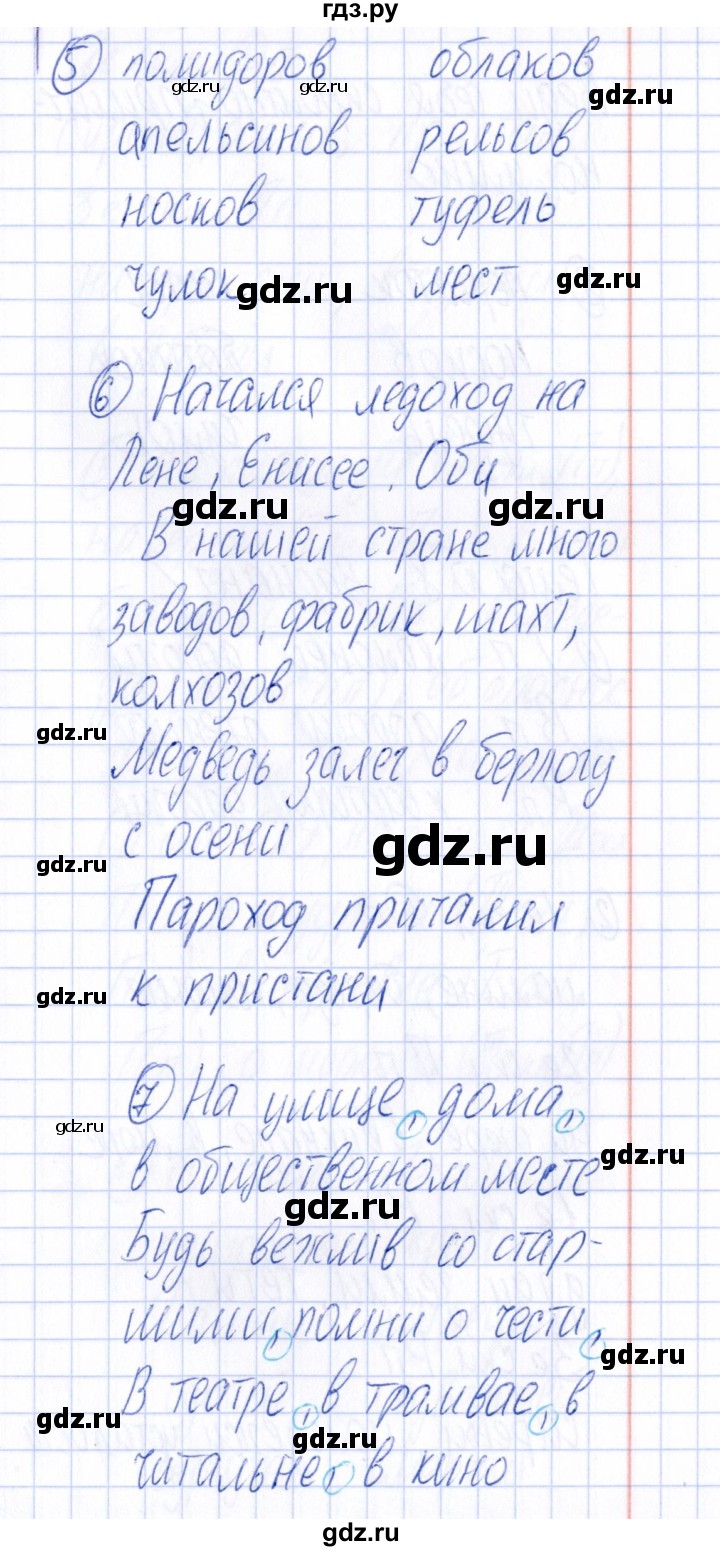 гдз.ру
5 помидоров облаков
gdz.ru gdz.ru gdz.ru
апельсинов рельсов
носков туфель
чулок мест
gdz.ru gdz.ru
6 Начался ледоход на
Лене, Енисее, Оби
gdz.ru gdz.ru
В нашей стране много
заводов, фабрик, шахт,
колхозов
gdz.ru
Медведь залег в берлогу
с осени
gdz.ru gdz.ru
Пароход причалил
к пристани
gdz.ru
7 На улице, дома,
gdz.ru
в общественном месте
gdz.ru
gdz.ru
Будь вежлив со стар-
шими, помни о чести,
gdz.ru
В театре, в трамвае, в
gdz.ru
gdz.ru
читальне, в кино
gdz.ru